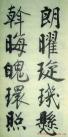 朗曜琁璣縣
斡晦魄環照